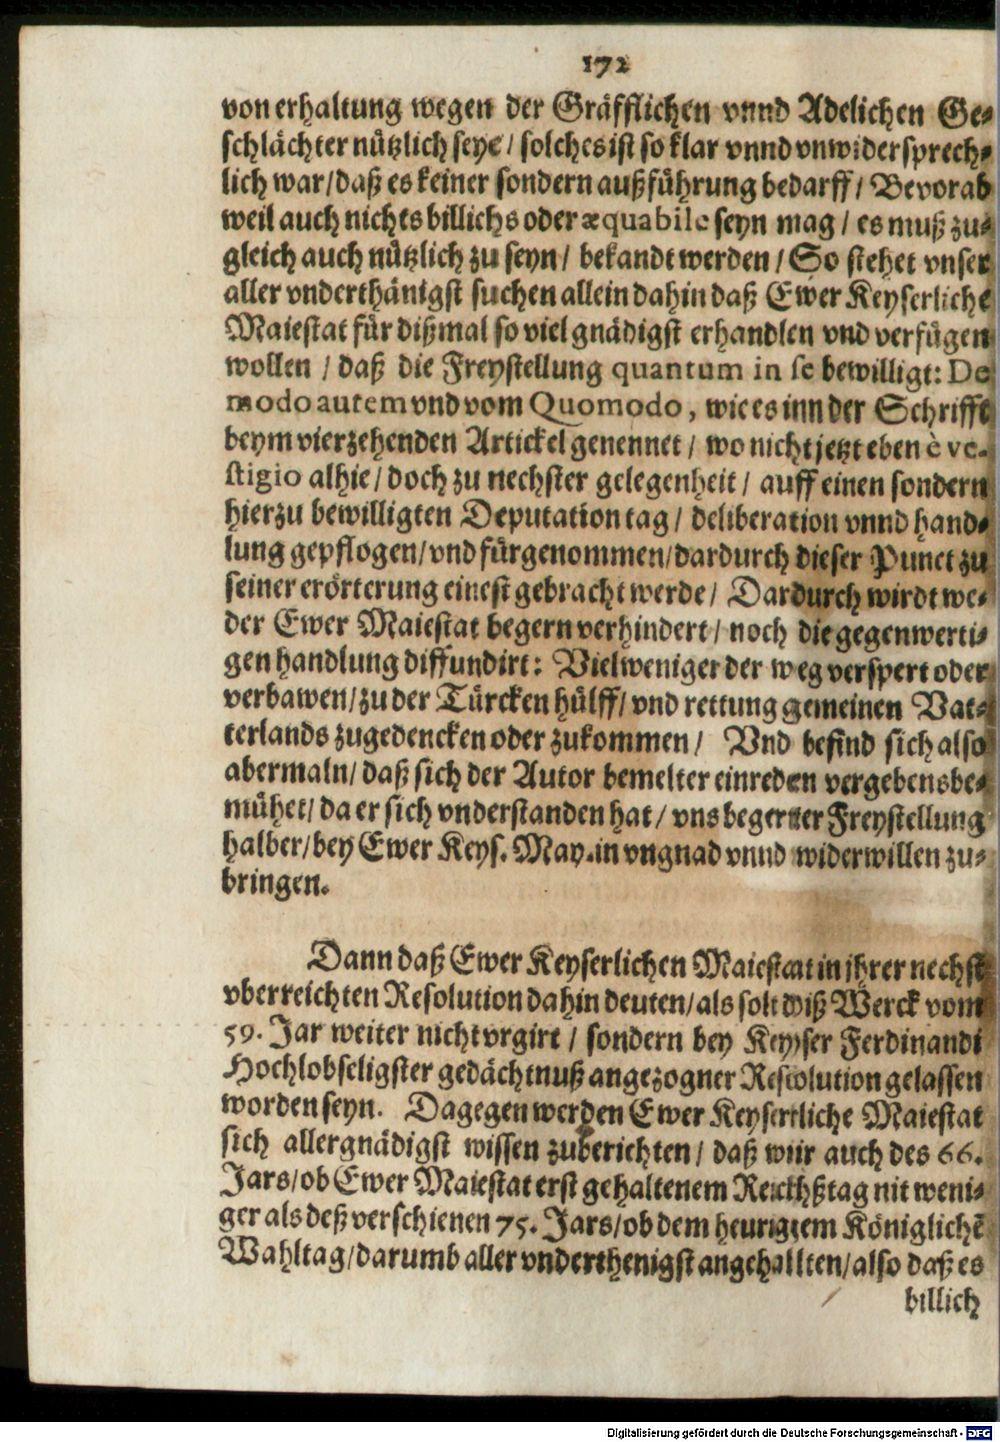 172
von erhaltung wegen der Gräfflichen vnnd Adelichen Ge-
schlächter nützlich seye / solches ist so klar vnnd vnwidersprech-
lich war / daß es keiner sondern außführung bedarff / Bevorab
weil auch nichts billichs oder æquabile seyn mag / es muß zu-
gleich auch nützlich zu seyn / bekandt werden / So stehet vnser
aller vnderthänigst suchen allein dahin daß Ewer Keyserliche
Maiestat für dißmal so viel gnädigst erhandlen vnd verfügen
wollen / daß die Freystellung quantum in se bewilligt: De
modo autem vnd vom Quomodo, wie es inn der Schrifft
beym vierzehenden Artickel genennet / wo nicht jetzt eben è ve-
stigio alhie / doch zu nechster gelegenheit / auff einen sondern
hierzu bewilligten Deputation tag / deliberation vnnd hand-
lung gepflogen / vnd fürgenommen / dardurch dieser Punct zu
seiner erörterung einest gebracht werde / Dardurch wirdt we-
der Ewer Maiestat begern verhindert / noch die gegenwerti-
gen handlung diffundirt: Viel weniger der weg verspert oder
verbawen / zu der Türcken hülff / vnd rettung gemeinen Vat-
terlands zugedencken oder zukommen / Vnd befind sich also
abermaln / daß sich der Autor bemelter einreden vergebens be-
mühet / da er sich vnderstanden hat / vns begerter Freystellung
halber / bey Ewer Keys. May. in vngnad vnnd widerwillen zu-
bringen.
Dann daß Ewer Keyserlichen Maiestat in ihrer nechst
vberreichten Resolution dahin deuten / als solt diß Werck vom
59. Jar weiter nicht vrgirt / sondern bey Keyser Ferdinandi
Hochlobseligster gedächtnuß angezogner Resolution gelassen
worden seyn. Dagegen werden Ewer Keyserliche Maiestat
sich allergnädigst wissen zuberichten / daß wir auch des 66.
Jars / ob Ewer Maiestat erst gehaltenem Reichßtag nit weni-
ger als deß verschienen 75. Jars / ob dem heurigem Königlichē
Wahltag / darumb aller vnderthenigst angehallten / also daß es
billich
Digitalisierung gefördert durch die Deutsche Forschungsgemeinschaft - DFG